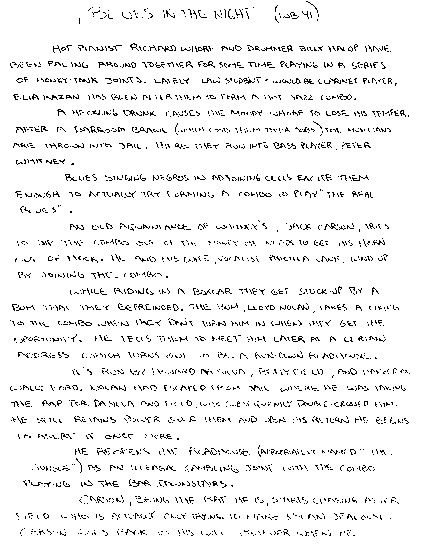 "BLUES IN THE NIGHT" (WB 41)
HOT PIANIST RICHARD WHORF AND DRUMMER BILLY HALOP HAVE
BEEN PALING AROUND TOGETHER FOR SOME TIME PLAYING IN A SERIES
OF HONKY-TONK JOINTS. LATELY LAW STUDENT - WOULD BE CLARINET PLAYER,
ELIA KAZAN HAS BEEN AFTER THEM TO FORM A HOT JAZZ COMBO.
A HECKLING DRUNK CAUSES THE MOODY WHORF TO LOSE HIS TEMPER.
AFTER A BARROOM BRAWL (WHICH COST THEM THEIR JOBS) THE MUSICIANS
ARE THROWN INTO JAIL. THERE THEY RUN INTO BASS PLAYER, PETER
WHITNEY.
BLUES SINGING NEGROS IN ADJOINING CELLS EXCITE THEM
ENOUGH TO ACTUALLY TRY FORMING A COMBO TO PLAY "THE REAL
BLUES".
AN OLD AQUAINTANCE OF WHITNEY'S, JACK CARSON, TRIES
TO THE COMBO OUT OF THE MONEY HE NEEDS TO GET HIS HORN
OUT OF HOCK. HE AND HIS WIFE, VOCALIST PRISCILLA LANE, WIND UP
BY JOINING THE COMBO.
WHILE RIDING IN A BOXCAR THEY GET STUCK-UP BY A
BUM THAT THEY BEFRIENDED. THE BUM, LLOYD NOLAN, TAKES A LIKING
TO THE COMBO WHEN THEY DON'T TURN HIM IN WHEN THEY GET THE
OPPORTUNITY. HE TELLS THEM TO MEET HIM LATER AT A CERTAIN
ADDRESS WHICH TURNS OUT TO BE A RUN-DOWN ROADHOUSE.
IT'S RUN BY HOWARD DA SILVA, BETTY FIELD, AND
WALLY FORD. NOLAN HAD ESCAPED FROM JAIL WHERE HE WAS TAKING
THE RAP FOR DA SILVA AND FIELD, WHO DOUBLE-CROSSED HIM.
HE STILL RETAINS POWER OVER THEM AND UPON HIS RETURN HE BEGINS
TO ASSERT IT ONCE MORE.
HE REOPENS THE ROADHOUSE (NAMED "THE
JUNGLE") AS AN ILLEGAL GAMBLING JOINT WITH THE COMBO
PLAYING IN THE BAR DOWNSTAIRS.
CARSON, BEING THE HE IS, STARTS CHASING AFTER
FIELD WHO IS ACTUALLY ONLY TRYING TO MAKE NOLAN JEALOUS.
CARSON GOES BACK TO HIS WIFE HOWEVER WHEN HE